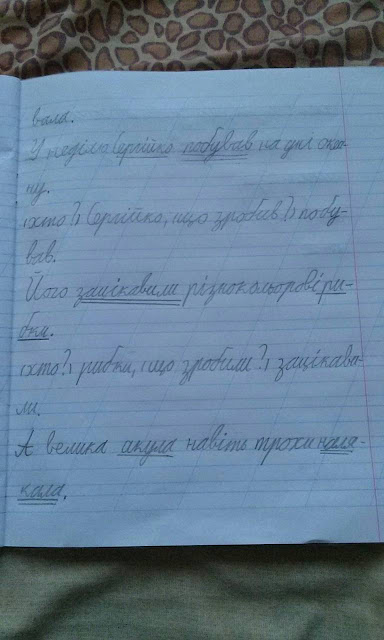 вала.
У неділю Сергійко побував на дні океа-
ну.
(хто?) Сергійко, (що зробив?) побу-
вав.
Його зацікавили різнокольорові ри-
бки.
(хто?) рибки, (що зробили?) зацікави-
ли.
А велика акула навіть трохи наля-
кала.